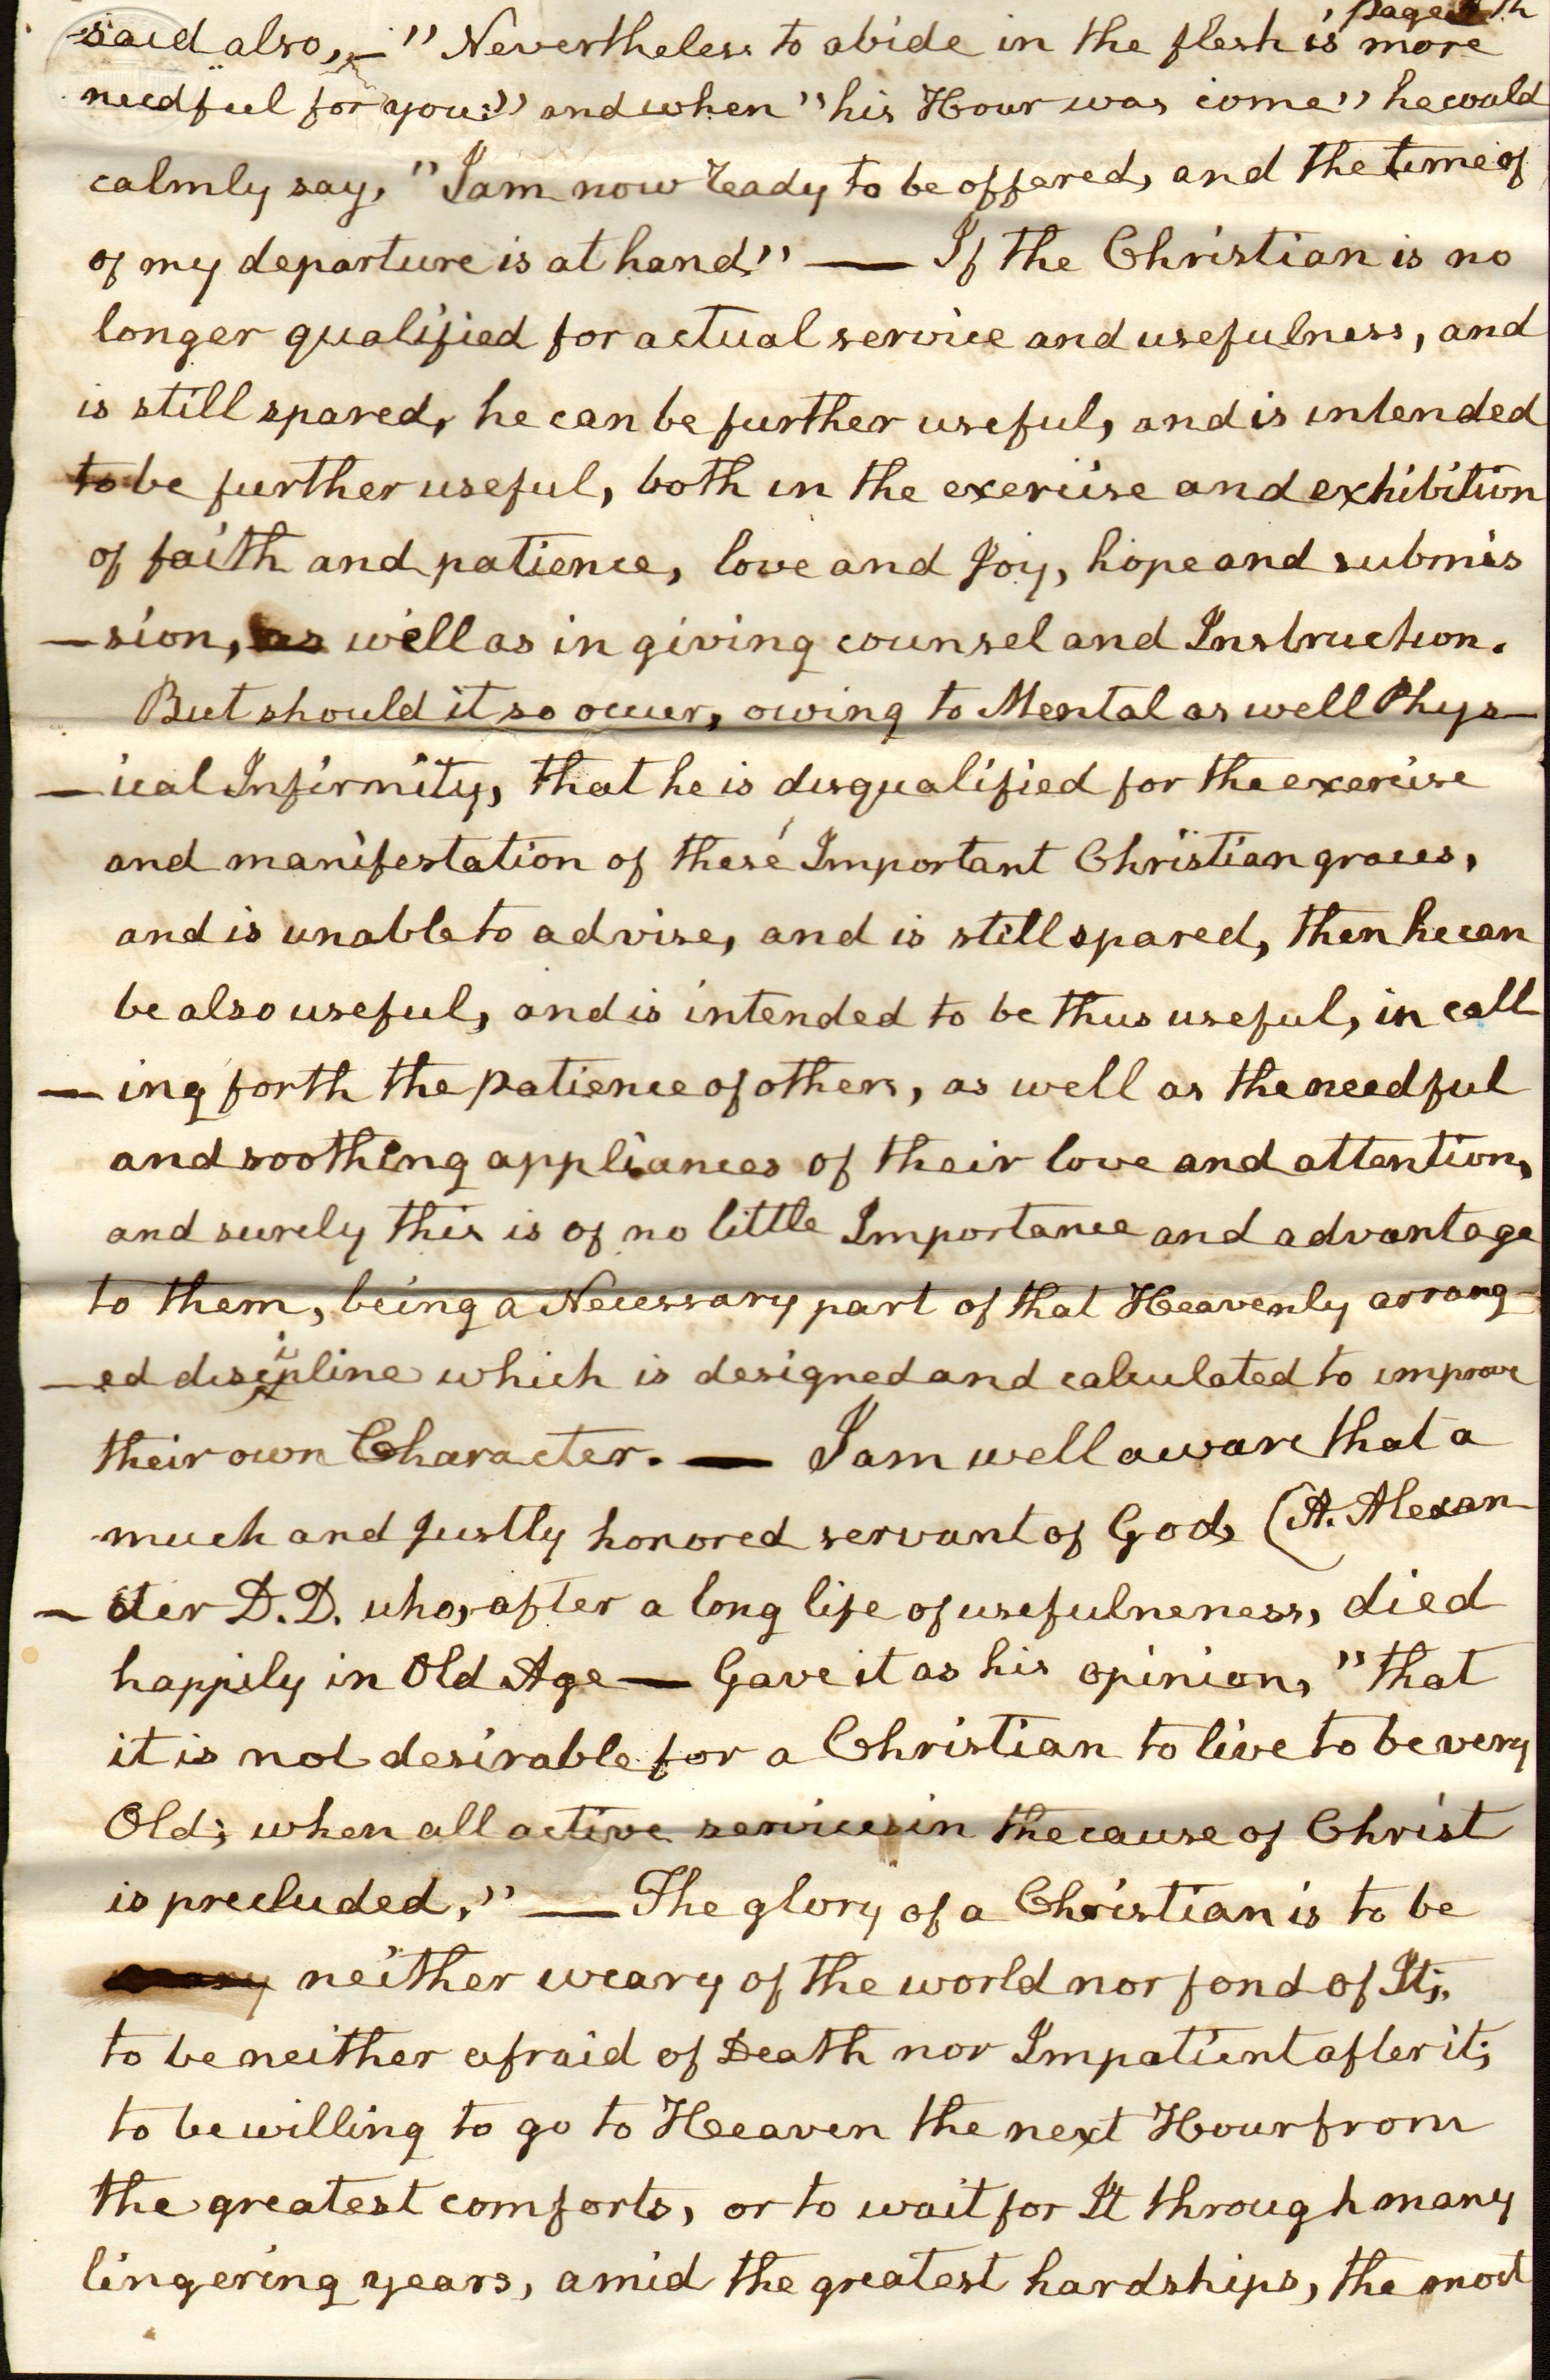 page
said also, — " Nevertheless to abide in the flesh is more
needful for you:" and when "his Hour was come" he could
calmly say, "I am now ready to be offered, and the time of
of my departure is at hand." — If the Christian is no
longer qualified for actual service and usefulness, and
is still spared, he can be further useful, and is intended
to be further useful, both in the exercise and exhibition
of faith and patience, love and Joy, hope and submis
—sion, as well as in giving counsel and Instruction.
But should it so occur, owing to Mental as well Phys—
—ical Infirmity, that he is disqualified for the exercise
and manifestation of these Important Christian graces,
and is unable to advise, and is still spared, then he can
be also useful, and is intended to be thus useful, in call
—ing forth the patience of others, as well as the needful
and soothing appliances of their love and attention,
and surely this is of no little Importance and advantage
to them, being a Necessary part of that Heavenly arrang—
—ed discipline which is designed and calculated to improve
their own Character. — I am well aware that a
much and justly honored servant of God, (A. Alexan—
—der D.D. who, after a long life of usefulneness, died
happily in Old Age — Gave it as his opinion, "that
it is not desirable for a Christian to live to be very
Old; when all active services in the cause of Christ
is precluded." — The glory of a Christian is to be
neither weary of the world nor fond of It;
to be neither afraid of Death nor Impatient after it;
to be willing to go to Heeaven the next Hour from
the greatest comforts, or to wait for It through many
lingering years, amid the greatest hardships, the most